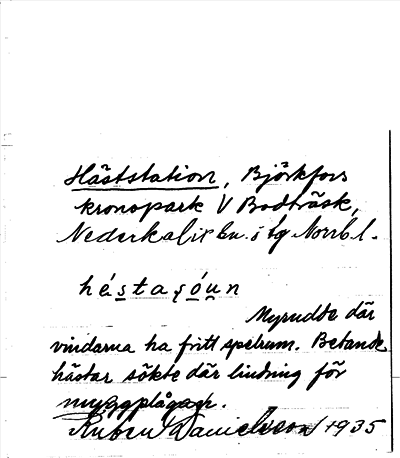 Häststation, Björkfors
kronopark V Bodträsk,
Nederkalix sn. o tg Norrb. l.
héstaʂóu̯n
Myrudde där
vindarna ha fritt spelrum. Betande
hästar sökte där lindring för
myggplågan.
Ruben Danielsson 1935